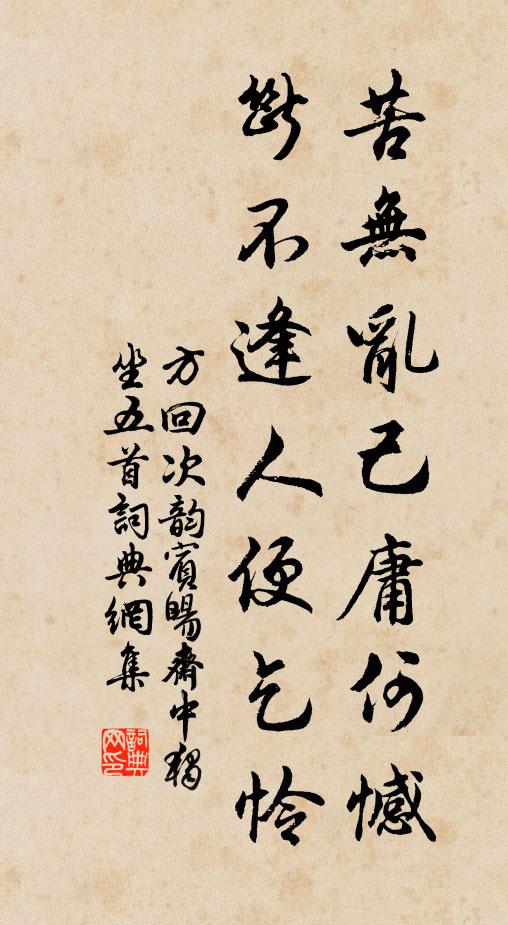 苦無亂己庸何憾
斷不逢人便乞憐
方回次韵賓暘齋中獨
坐五首詞典網集
詞典網印